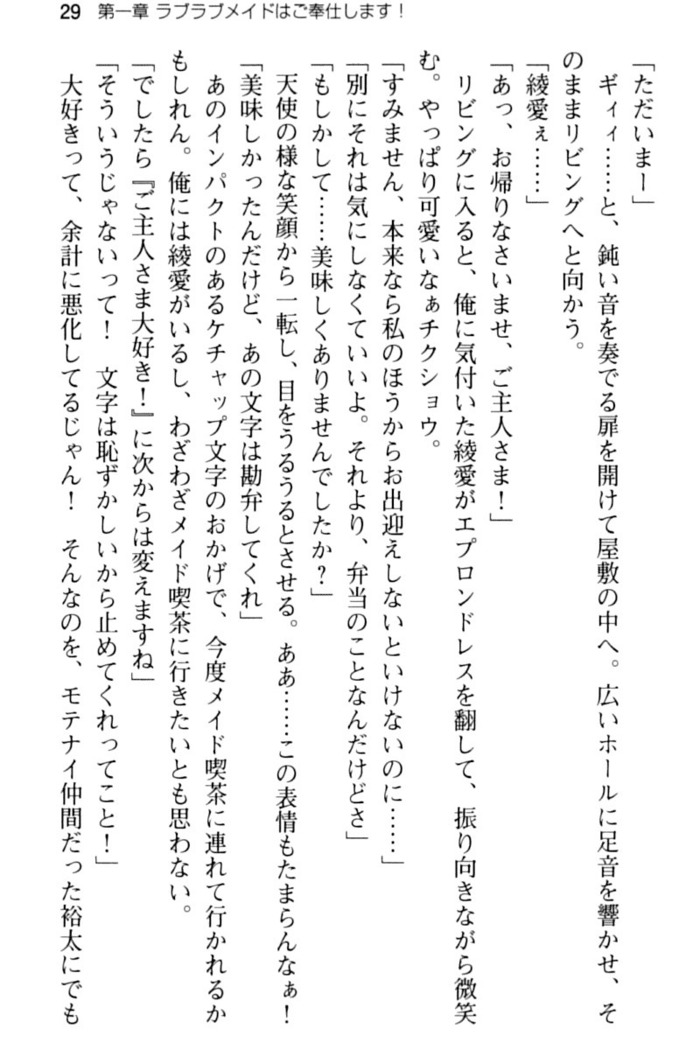 29 第一章 ラブラブメイドはご奉仕します!
「ただいまー」
ギィィ……と、鈍い音を奏でる扉を開けて屋敷の中へ。広いホールに足音を響かせ、そ
のままリビングへと向かう。
「綾愛ぇ……」
「あっ、お帰りなさいませ、ご主人さま!」
リビングに入ると、俺に気付いた綾愛がエプロンドレスを翻して、振り向きながら微笑
む。やっぱり可愛いなぁチクショウ。
「すみません、本来なら私のほうからお出迎えしないといけないのに……」
「別にそれは気にしなくていいよ。それより、弁当のことなんだけどさ」
「もしかして……美味しくありませんでしたか?」
天使の様な笑顔から一転し、目をうるうるとさせる。ああ……この表情もたまらんなぁ!
「美味しかったんだけど、あの文字は勘弁してくれ」
あのインパクトのあるケチャップ文字のおかげで、今度メイド喫茶に連れて行かれるか
もしれん。俺には綾愛がいるし、わざわざメイド喫茶に行きたいとも思わない。
「でしたら『ご主人さま大好き!』に次からは変えますね」
「そういうじゃないって! 文字は恥ずかしいから止めてくれってこと!」
大好きって、余計に悪化してるじゃん! そんなのを、モテナイ仲間だった裕太にでも